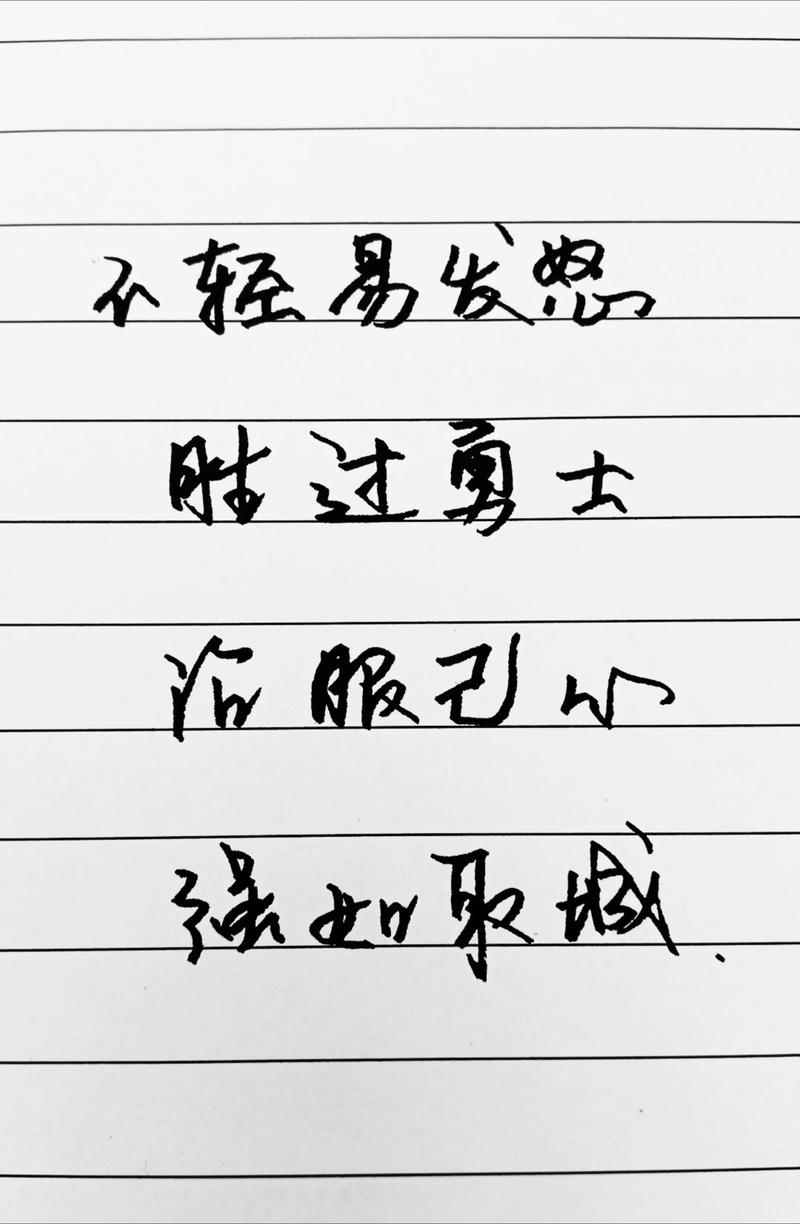 不轻易发怒
胜过勇士
治服己心
强如取城.